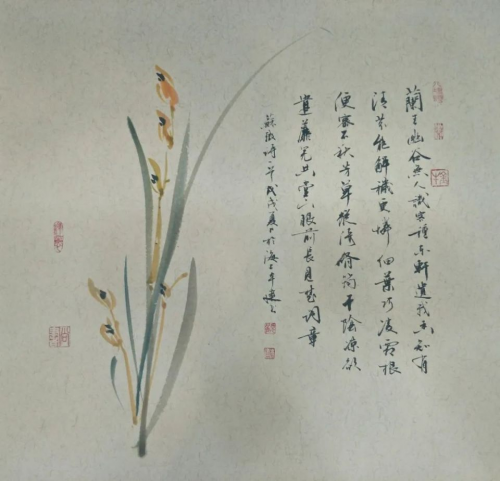 蘭生幽谷無人識客種東軒遺我香知有
清芬能解穢更憐細葉巧凌霜根
便密石秋芳早叢倚脩筠午陰涼欲
遣蘼蕪共堂下眼前長見楚詞章
蘇轍詩一首戊戌夏日於海上